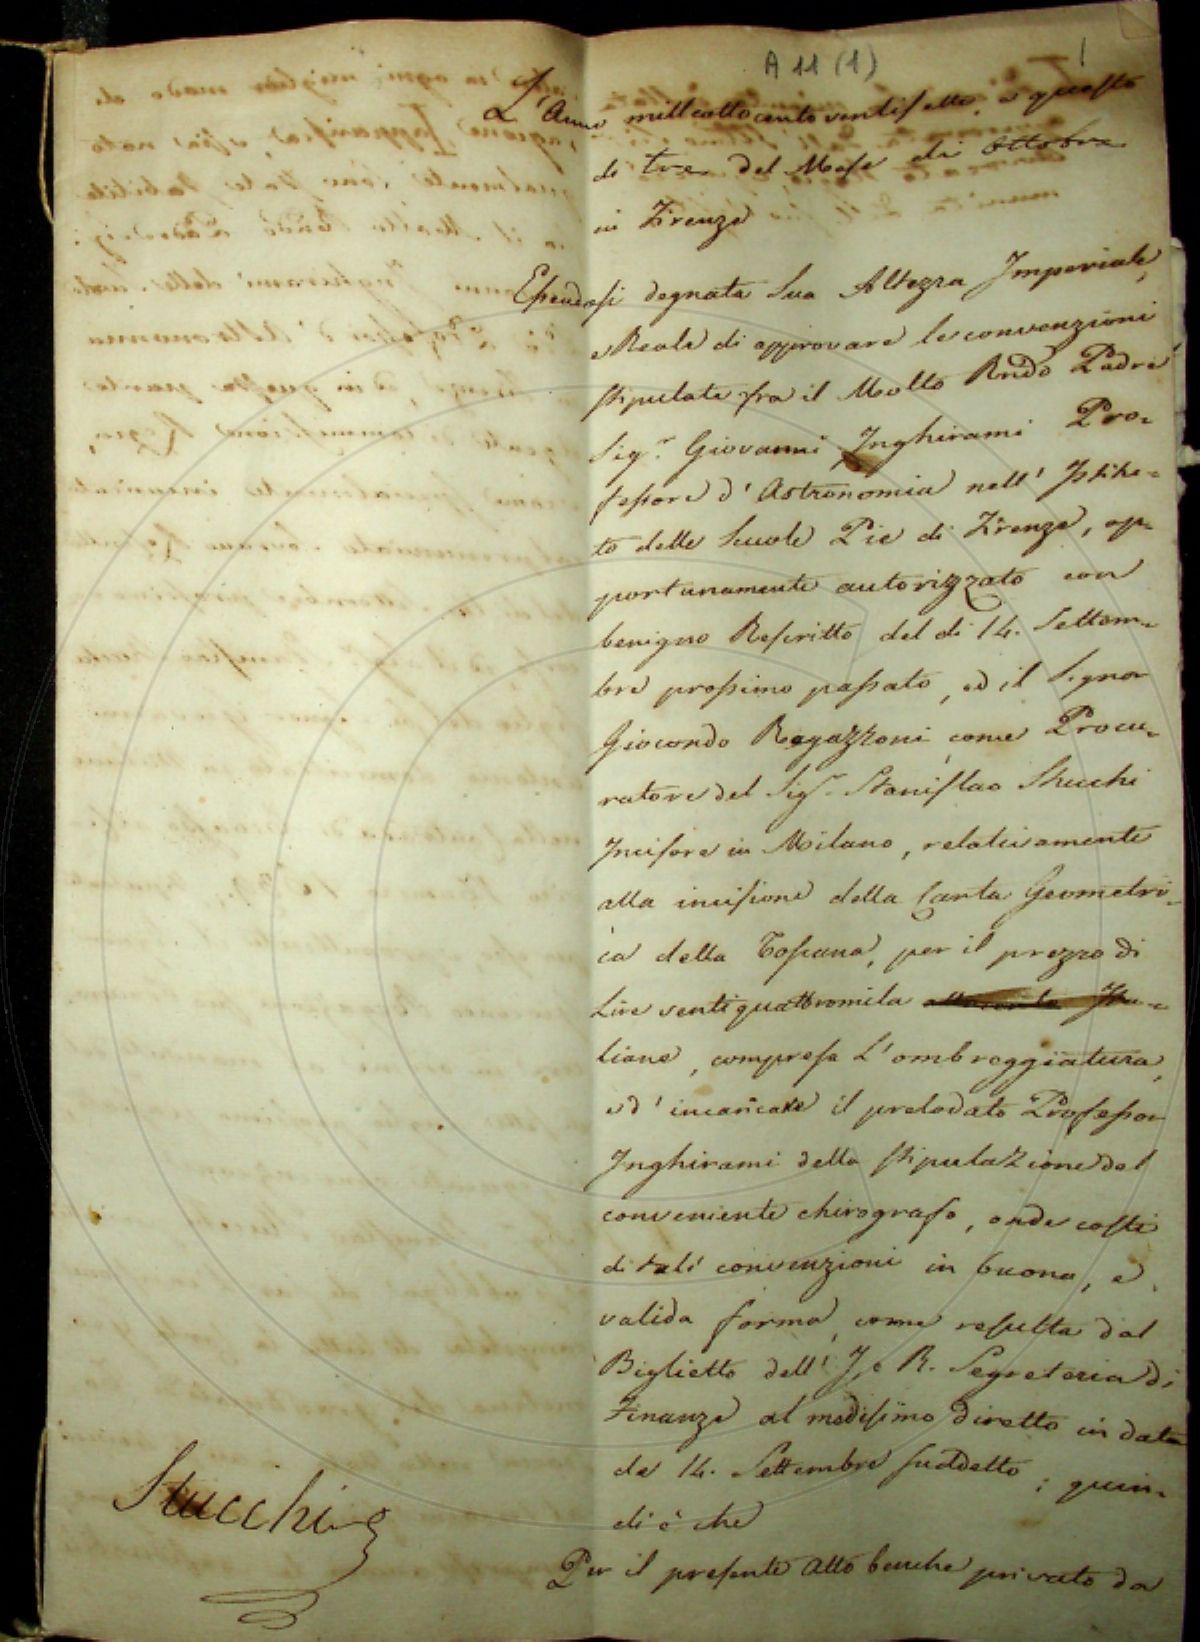 A 11 (1)
1
L'Anno milleottocento ventisette, a questo
dì tre del Mese di Ottobre
in Firenze
Essendosi degnata Sua Altezza Imperiale,
e Reale di approvare le convenzioni
stipulate fra il Molto Rndo Padre
Sigr. Giovanni Inghirami Pro-
fessore d'Astronomia nell'Istitu-
to delle Scuole Pie di Firenze, op-
portunamente autorizzato con
benigno Rescritto del dì 14. Settem-
bre prossimo passato, ed il Signor
Giocondo Ragazzoni, come Procu-
ratore del Sigr. Stanislao Stucchi
Incisore in Milano, relativamente
alla incisione della Carta Geometri-
ca della Toscana, per il prezzo di
Lire ventiquattromila ottocento Ita-
liane, compresa l'ombreggiatura,
ed' incaricare il prelodato Professor
Inghirami della stipulazione del
conveniente chirografo, onde costi
di tali convenzioni in buona, e
valida forma, come resulta dal
Biglietto dell'I. e R. Segreteria di
Finanze al medesimo diretto in data
de 14. Settembre suddetto; quin-
di è che
Per il presente Atto benche privato da
Stucchi